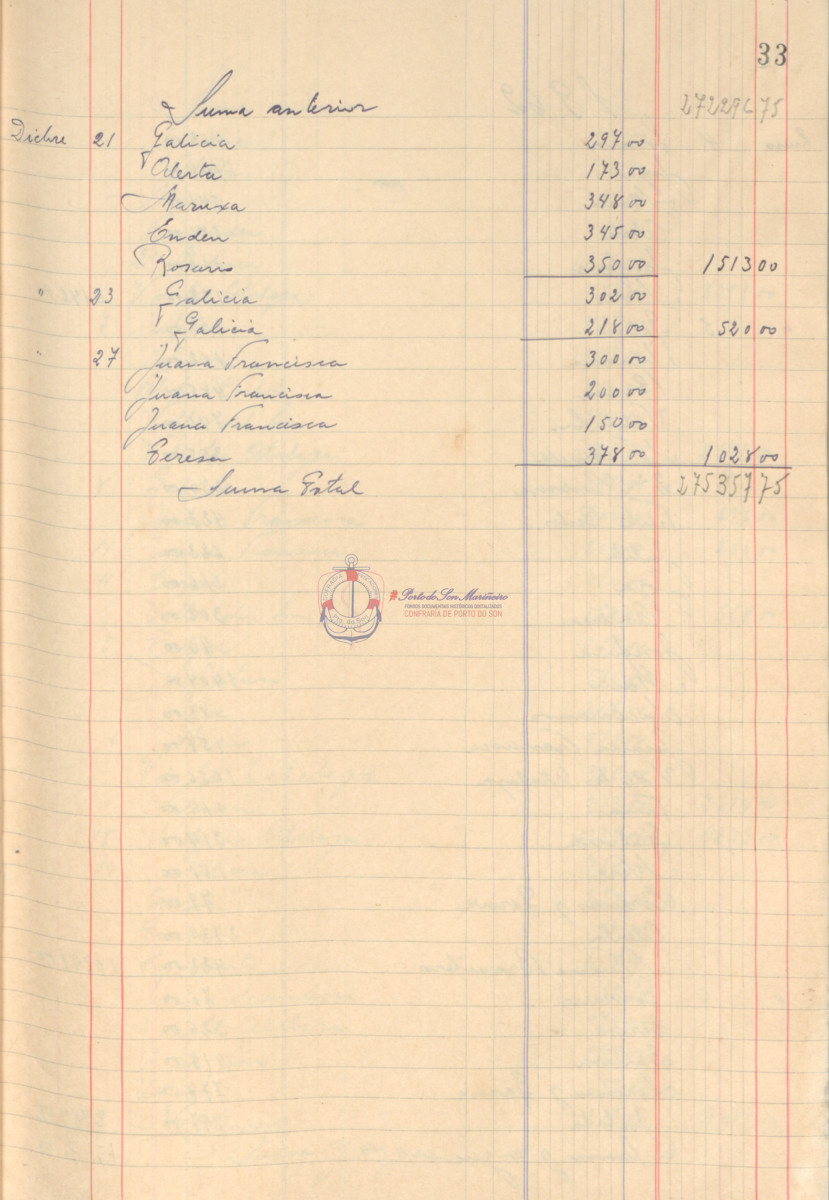 33
Suma anterior 272296 75
Dicbre 21 Galicia 297 00
Alerta 173 00
Maruxa 348 00
Enden 345 00
Rosario 350 00 1513 00
" 23 Galicia 302 00
Galicia 218 00 520 00
" 27 Juana Francisca 300 00
Juana Francisca 200 00
Juana Francisca 150 00
Teresa 378 00 1028 00
Suma Total 275357 75
#Porto do Son Mariñeiro
FONDOS DOCUMENTAIS HISTÓRICOS DIXITALIZADOS
CONFRARÍA DE PORTO DO SON